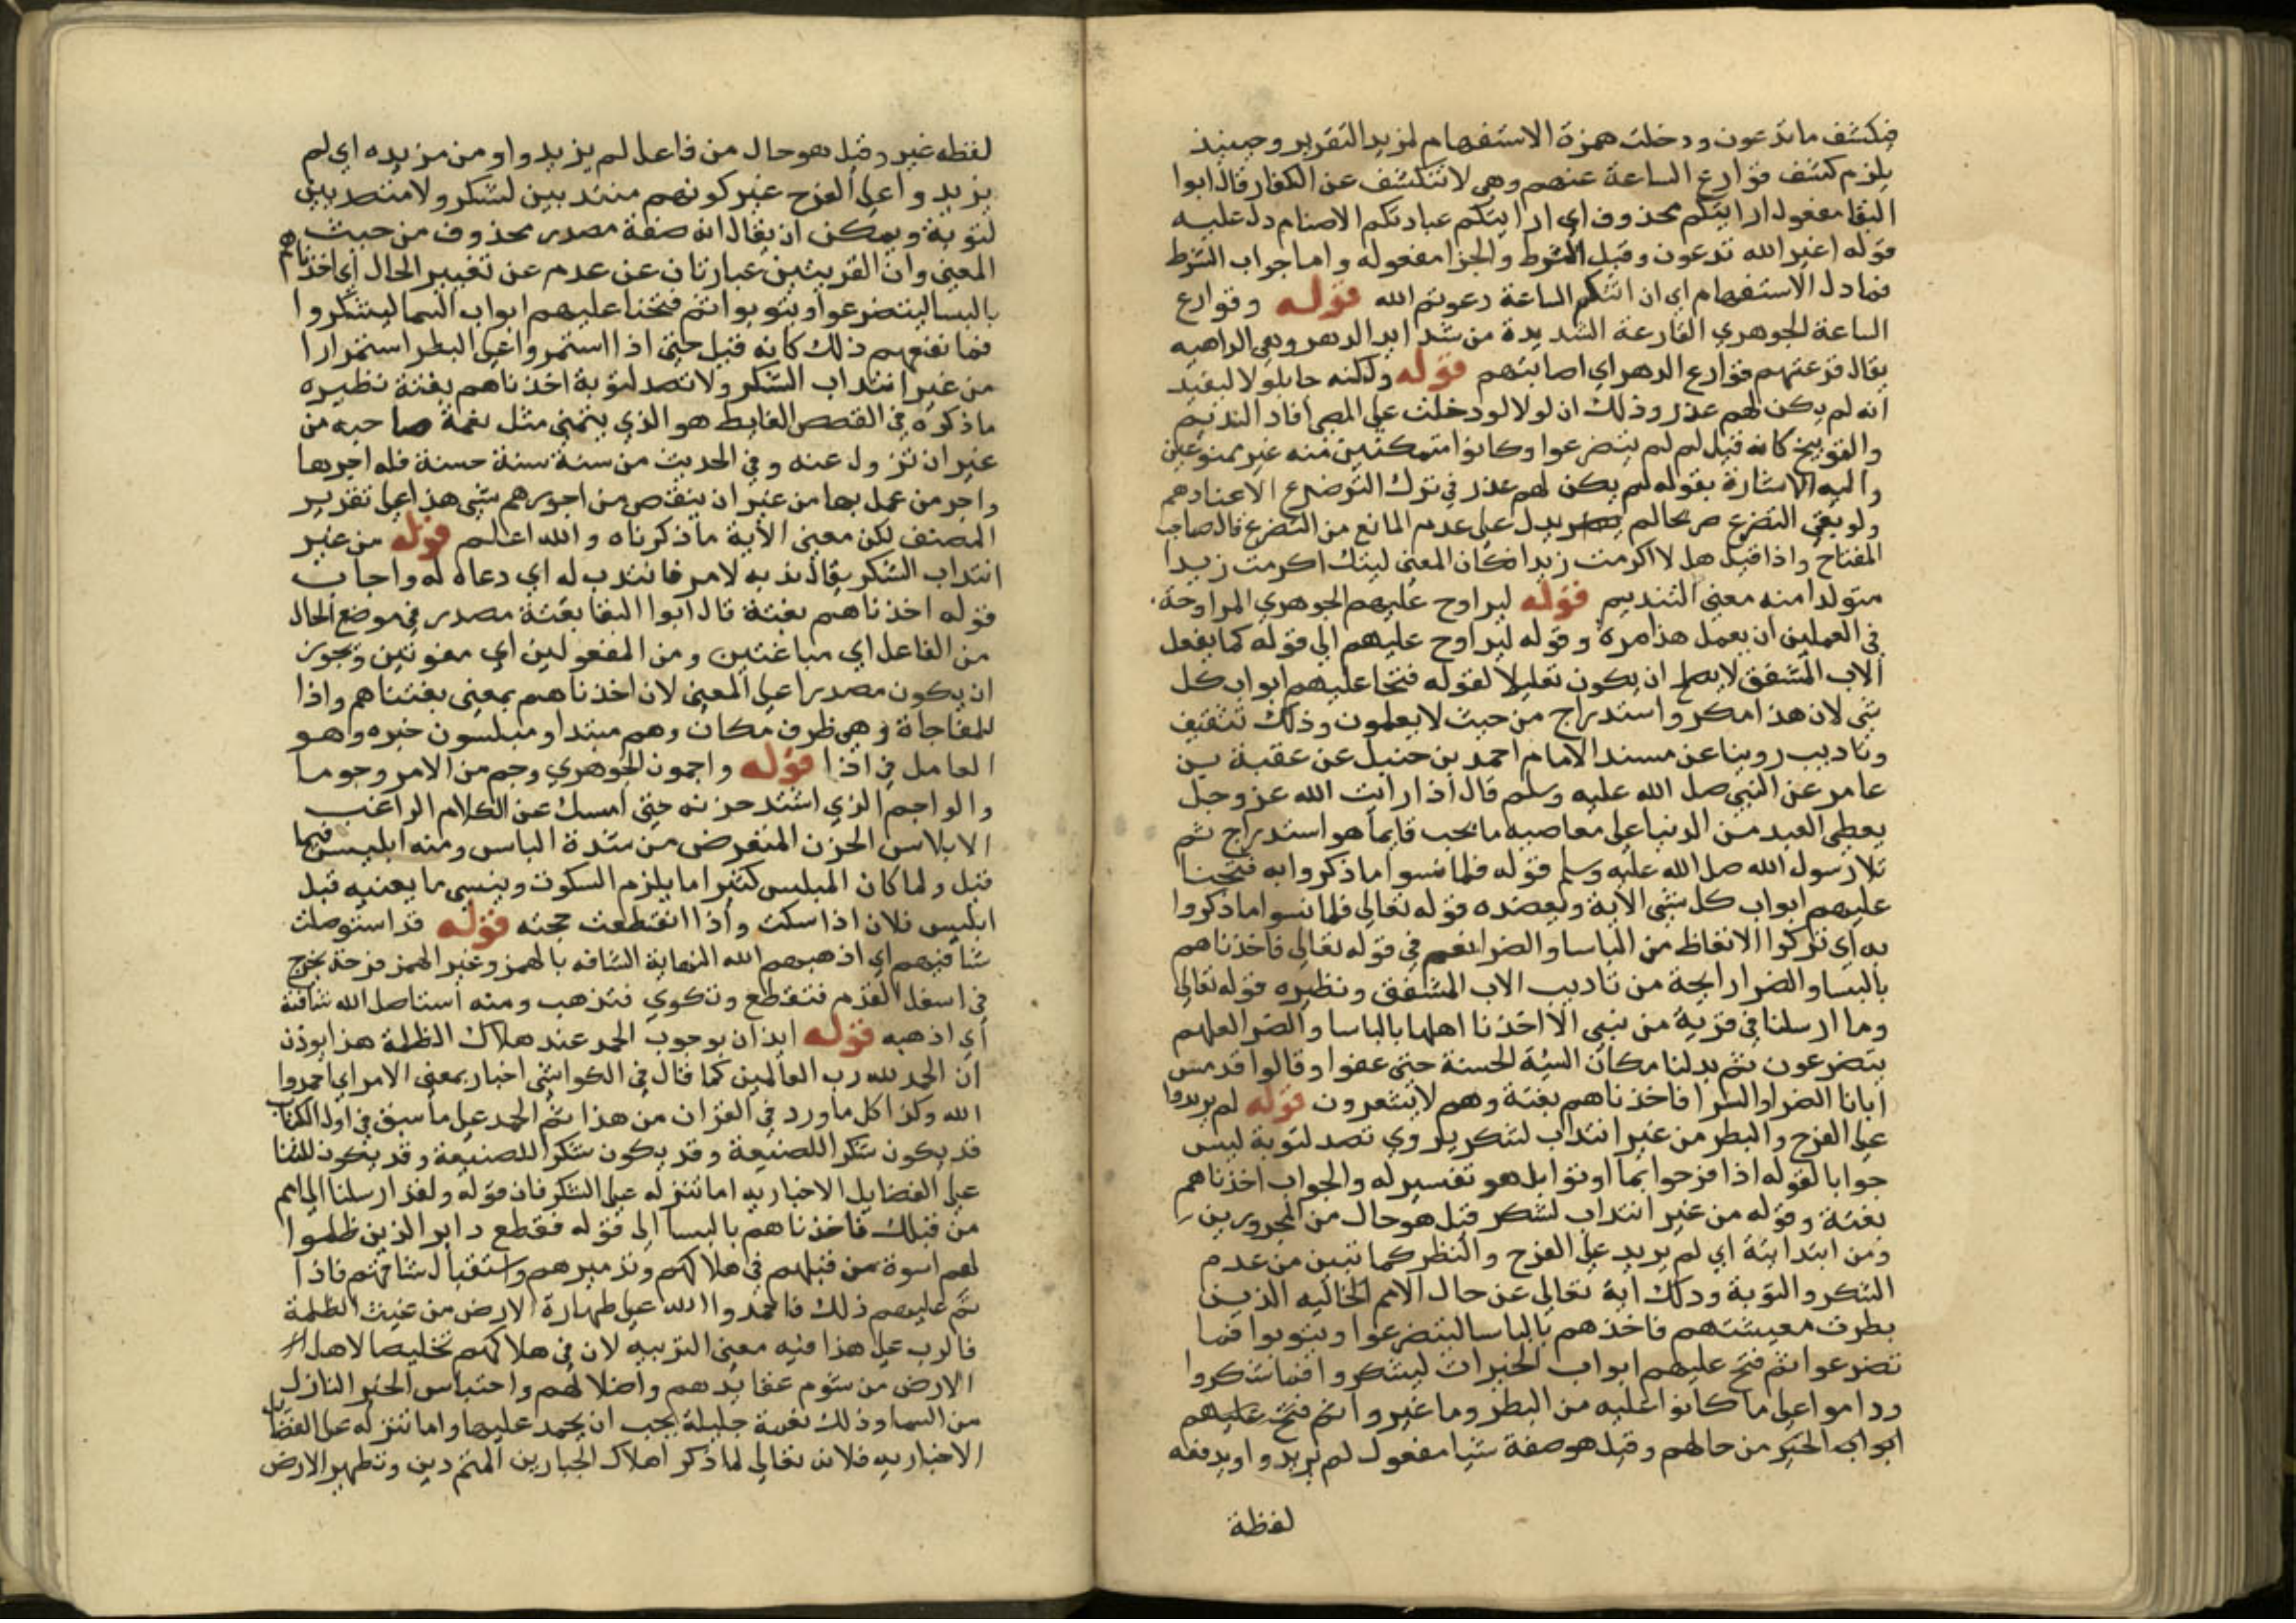 فيكشف ما تدعون ودخلت همزة الاستفهام لمزيد التقرير وحينئذ
يلزم كشف قوارع الساعة عنهم وهي لا تنكشف عن الكفار قال ابوا
البقا مفعول ارايتكم محذوف اي ارايتكم عبادتكم الاصنام دل عليه
قوله اغير الله تدعون وقيل الشرط والجزا مفعوله واما جواب الشرط
فما دل الاستفهام اي ان اتتكم الساعة دعوتم الله قوله وقوارع
الساعة الجوهري القارعة الشديدة من شدايد الدهر وهي الداهيه
يقال قرعتهم قوارع الدهر اي اصابتهم قوله ولكنه جا بلولا ليفيد
انه لم يكن لهم عذر وذلك ان لولا لو دخلت على المضي افاد التنديم
والتوبيخ كانه قيل لم لم يتضرعوا وكانوا متمكنين منه غير ممنوعين
واليه الاشارة بقوله لم يكن لهم عذر في ترك التوضرع الا عنادهم
ولو بقي التضرع صريحا لم يدل على عدم المانع من التضرع قال صاحب
المفتاح واذا قيل هل لا اكرمت زيدا فكان المعنى ليتك اكرمت زيدا
متولدا منه معنى التنديم قوله ليراوح عليهم الجوهري المراوحة
في العملين ان يعمل هذا مرة وقوله ليراوح عليهم الى قوله كما يفعل
الاب المشفق لا يصلح ان يكون تعليلا لقوله فتحنا عليهم ابواب كل
شي لان هذا مكر واستدراج من حيث لا يعلمون وذلك تثقيف
وتاديب روينا عن مسند الامام احمد بن حنبل عن عقبة بن
عامر عن النبي صل الله عليه وسلم قال اذا رايت الله عز وجل
يعطي العبد من الدنيا على معاصيه ما يحب فانما هو استدراج ثم
تلا رسول الله صل الله عليه وسلم قوله فلما نسوا ما ذكروا به فتحنا
عليهم ابواب كل شي الاية ويعضده قوله تعالى فلما نسوا ما ذكروا
به اي تركوا الاتعاظ من الباسا والضرا نعم في قوله تعالى فاخذناهم
بالبسا والضرا رايحة من تاديب الاب المشفق ونظيره قوله تعالى
وما ارسلنا في قرية من نبي الا اخذنا اهلها بالباسا والضر العلهم
يتضرعون ثم بدلنا مكان السيئة الحسنة حتى عفوا وقالوا قد مس
ابانا الضرا والسرا فاخذناهم بغتة وهم لا يشعرون قوله لم يزيدوا
على الفرح والبطر من غير انتداب لشكر يد وي تصد لتوبة ليس
جوابا لقوله اذا فرحوا بما اوتوا بل هو تفسير له والجواب اخذناهم
بغتة وقوله من غير انتداب لشكر قيل هو حال من المجرورين
ومن ابتدايية اي لم يزيد على الفرح والنظر كما تبين من عدم
الشكر والتوبة وذلك اية تعالى عن حال الامم الخاليه الذين
بطرت معيشتهم فاخذهم بالباسا ليتضرعوا ويتوبوا فما
تضرعوا ثم فتح عليهم ابواب الخيرات ليشكروا فما شكروا
وداموا على ما كانوا عليه من البطر وما غيروا ثم فتح عليهم
ابواب الخير من حالهم وقيل هو صفة شيا مفعول لم يزيدوا ويدفعه
لفظة
لفظه غير وقيل هو حال من فاعل لم يزيدوا ومن مزيده اي لم
يزيدوا على الفرح غير كونهم منتدبين لشكر ولا متصديين
لتوبة ويمكن ان يقال انه صفة مصدر محذوف من حيث
المعنى وان القرينتين عبارتان عن عدم عن تغيير الحال اي اخذناهم
بالبسا ليتضرعوا ويتوبوا ثم فتحنا عليهم ابواب السما ليشكروا
فما نفعهم ذلك كانه قيل حتى اذا استمروا على البطر استمرارا
من غير انتداب الشكر ولا تصد لتوبة اخذناهم بغتة نظيره
ما ذكره في القصص الغابط هو الذي يتمنى مثل نعمة صاحبه من
غير ان تزول عنه وفي الحديث من سنة سنة حسنة فله اجرها
واجر من عمل بها من غير ان ينقص من اجورهم شي هذا على تقرير
المصنف لكن معنى الاية ما ذكرناه والله اعلم قوله من غير
انتداب الشكر يقال ندبه لامر فانتدب له اي دعاه له واجاب
قوله اخذناهم بغتة قال ابوا البقا بغتة مصدر في موضع الحال
من الفاعل اي مباغتين ومن المفعولين اي مبغوتين ويجوز
ان يكون مصدرا على المعنى لان اخذناهم بمعنى بغتناهم واذا
للمفاجاة وهي ظرف مكان وهم مبتدا ومبلسون خبره وهو
العامل في اذا قوله واجمون الجوهري وجم من الامر وجوما
والواجم الذي اشتد حزنه حتى امسك عن الكلام الراغب
الابلاس الحزن المتعرض من شدة الباس ومنه ابليس فيما
قيل ولما كان المبلس كثيرا ما يلزم السكوت وينسى ما يعنيه قيل
ابليس فلان اذا سكت واذا انقطعت حجته قوله قد استوصلت
شافتهم اي اذهبهم الله النهاية الشافه بالهمز وغير الهمز قرحة تخرج
في اسفل القدم فتقطع وتكوي فتذهب ومنه استاصل الله شافته
اي اذهبه قوله ايذان بوجوب الحمد عند هلاك الظلمة هذا يوذن
ان الحمد لله رب العالمين كما قال في الكواشي اخبار بمعنى الامر اي احمدوا
الله وكذا كل ما ورد في القران من هذا ثم الحمد على ما سبق في اول الكتاب
قد يكون شكرا للصنيعة وقد يكون شكرا للصنيعة وقد يكون للثنا
على الفضايل الاخباريه اما تنزله على الشكر فان قوله ولقد ارسلنا الى امم
من قبلك فاخذناهم بالبسا الى قوله فقطع دابر الذين ظلموا
لهم اسوة من قبلهم في هلاكهم وتدميرهم واستقبال شافتهم فاذا
تم عليهم ذلك فاحمدوا الله على طهارة الارض من عيث الظلمة
فالرب على هذا فيه معنى التربيه لان في هلاكهم تخليصا لاهل
الارض من شوم عقايدهم واضلالهم واحتباس الخير النازل
من السما وذلك نعمة جليلة يجب ان يحمد عليها واما تنزله على الفضايل
الاخباريه فلانه تعالى لما ذكر اهلاك الجبارين المتمردين وتطهير الارض